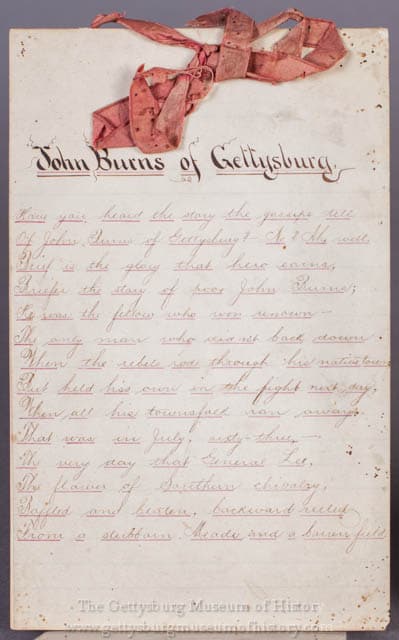 John Burns of Gettysburg.
Have you heard the story the gossips tell
Of John Burns of Gettysburg? No? Ah, well,
Brief is the glory that hero earns,
Briefer the story of poor John Burns;
He was the fellow who won renown —
The only man who did not back down
When the rebels rode through his native town
But held his own in the fight next day,
When all his townsfolk ran away.
That was in July, sixty-three, —
The very day that General Lee,
The flower of Southern chivalry,
Baffled and beaten, backward reeled
From a stubborn Meade and a barren field
The Gettysburg Museum of Histor
www.gettysburgmuseumofhistory.com